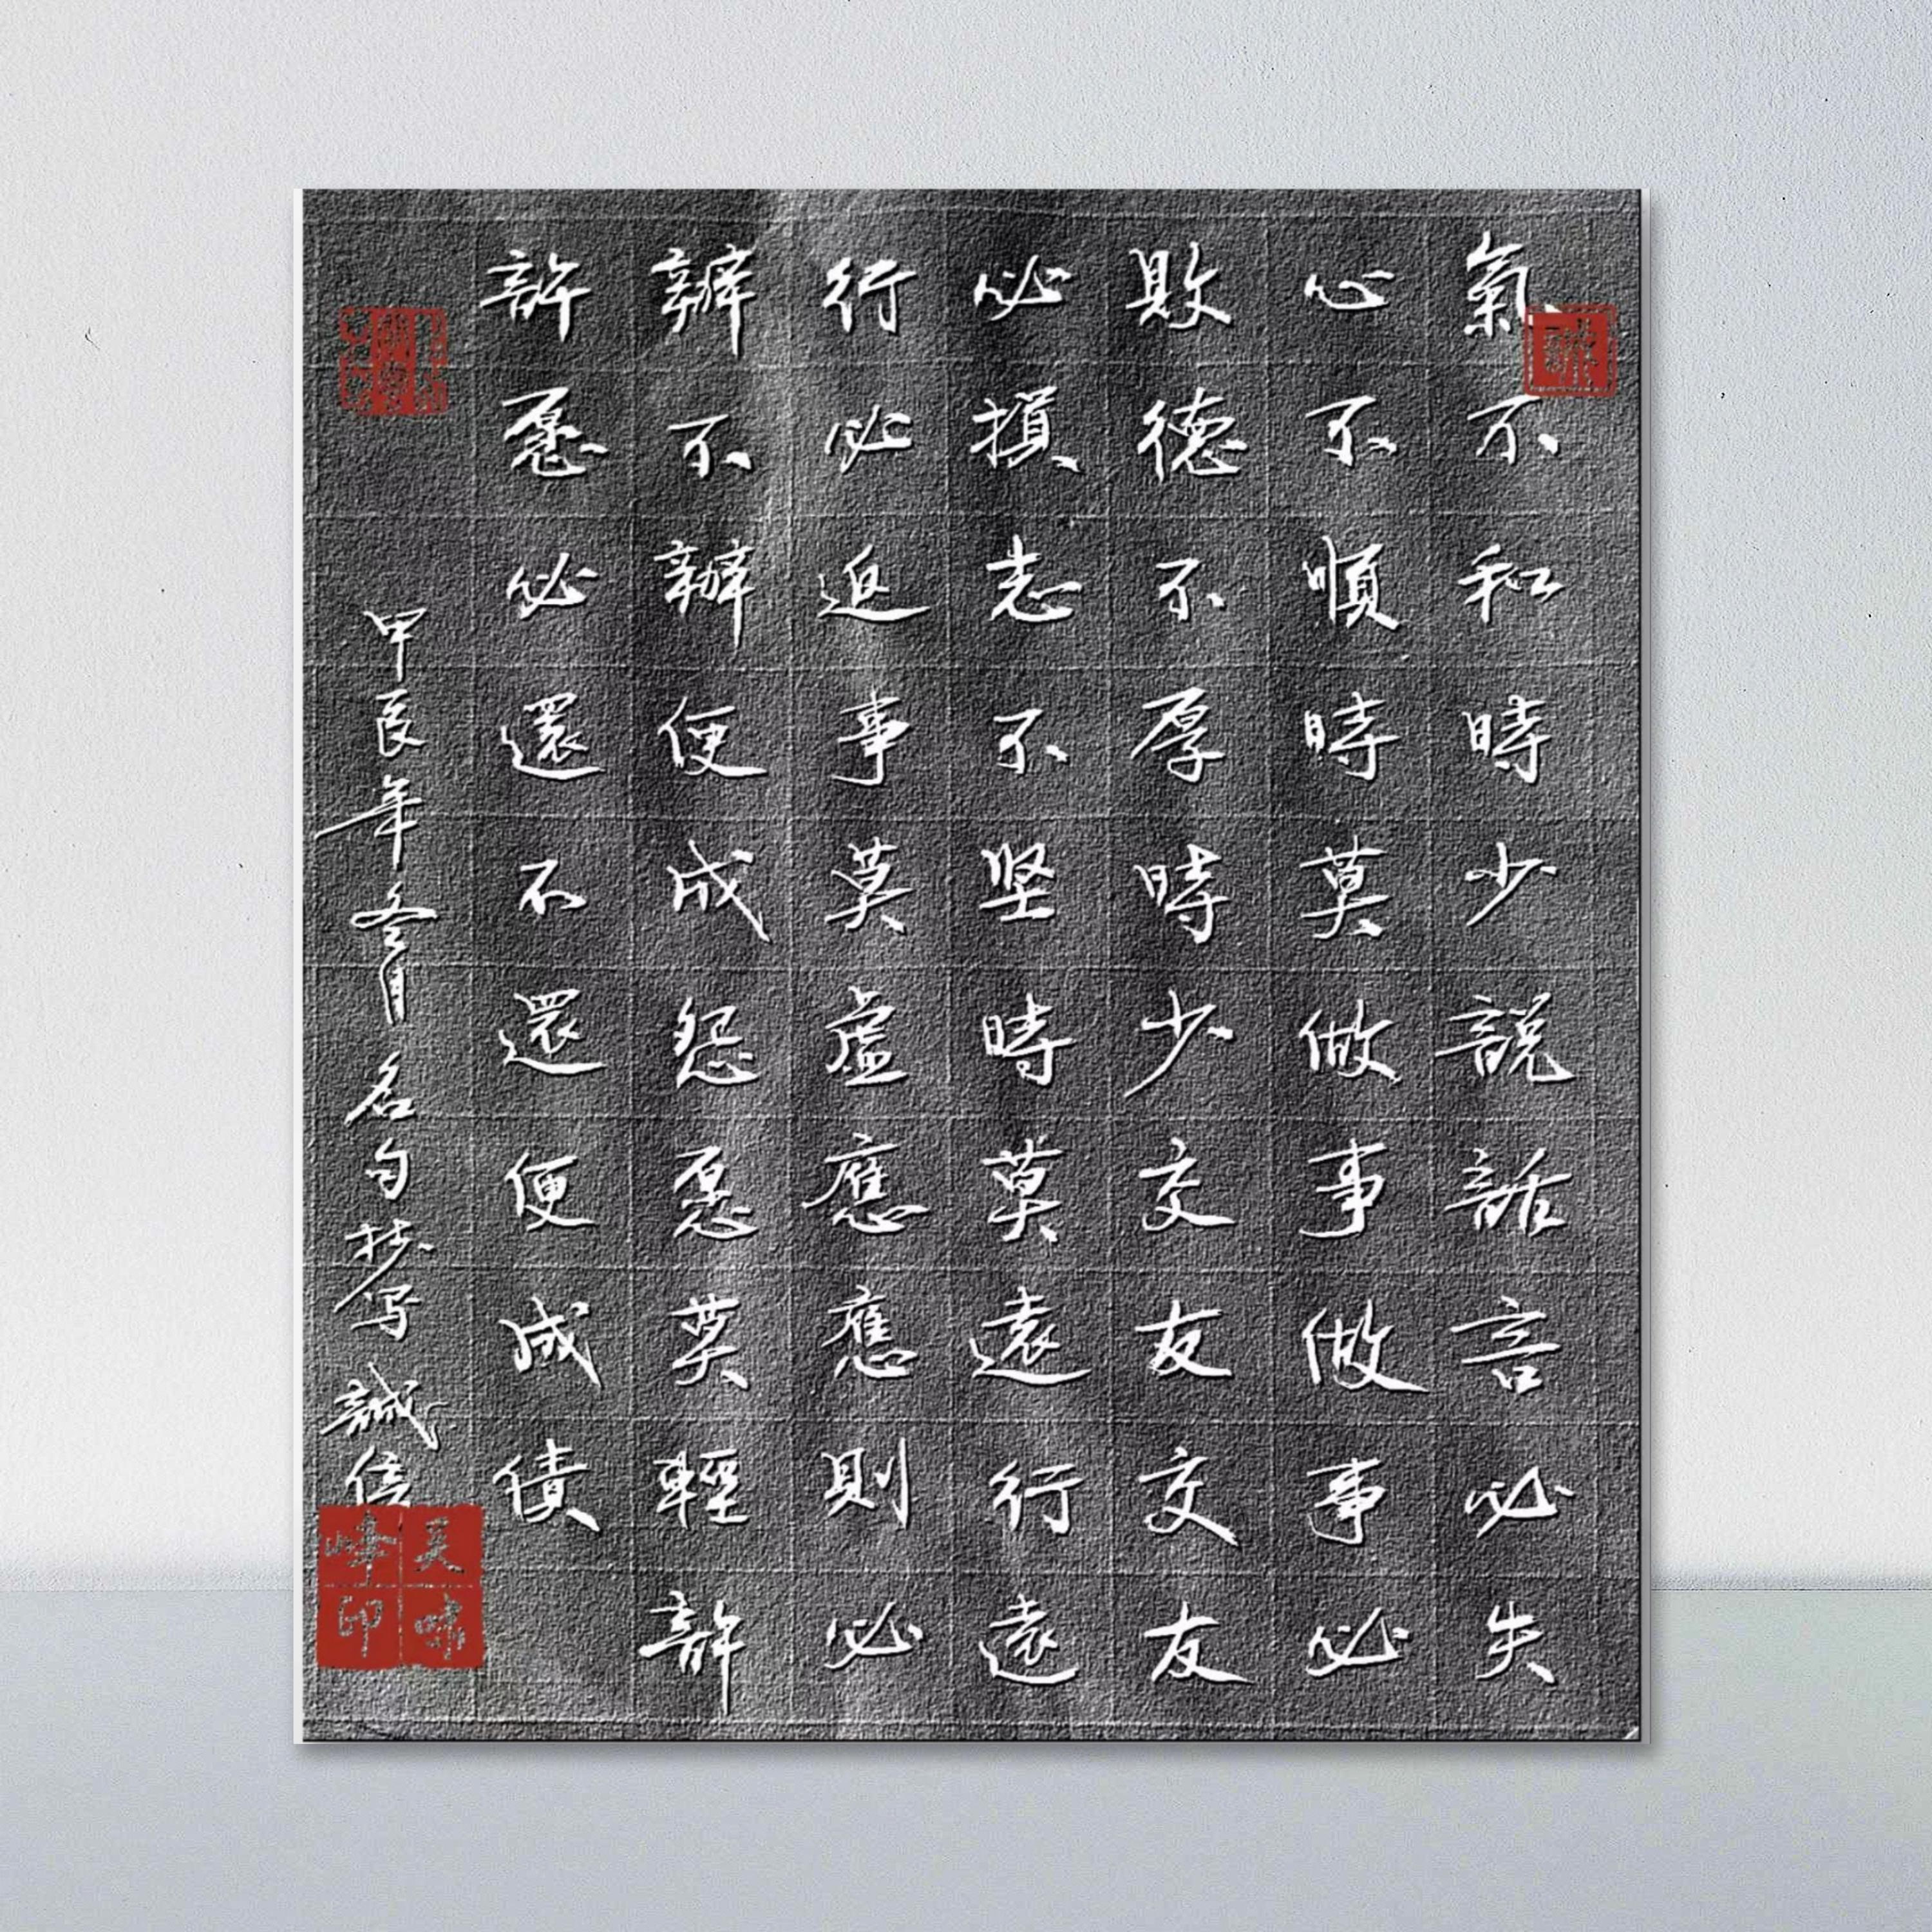 氣不和時少説話言必失
心不順時莫做事做事必
敗德不厚時少交友交友
必損志不坚時莫遠行遠
行必迫事莫虚應應則必
辦不辦便成怨愿莫輕許
許愿必還不還便成債
甲辰年冬月名句抄写誠信
吴啸峰印